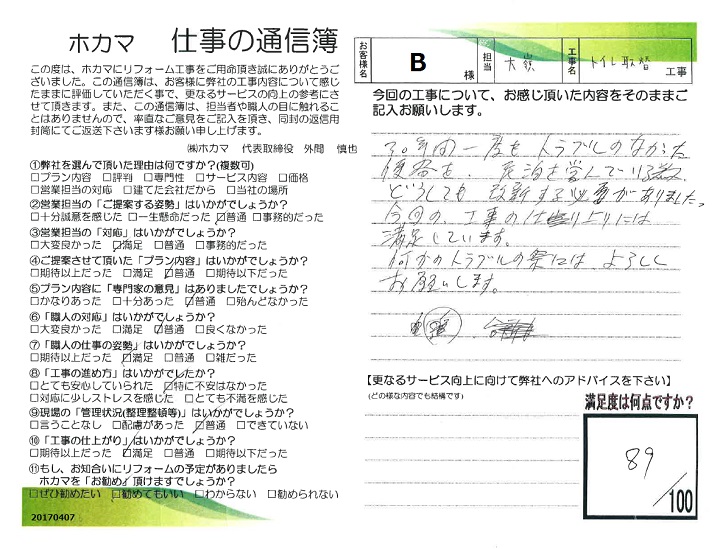 ホカマ 仕事の通信簿
この度は、ホカマにリフォーム工事をご用命頂き誠にありがとうご
ざいました。この通信簿は、お客様に弊社の工事内容について感じ
たままに評価していただく事で、更なるサービスの向上の参考にさ
せて頂きます。また、この通信簿は、担当者や職人の目に触れるこ
とはありませんので、率直なご意見をご記入を頂き、同封の返信用
封筒にてご返送下さいます様お願い申し上げます。
㈱ホカマ 代表取締役 外間 慎也
①弊社を選んで頂いた理由は何ですか?(複数可)
□プラン内容 □評判 □専門性 □サービス内容 □価格
□営業担当の対応 □建てた会社だから □当社の場所
②営業担当の「ご提案する姿勢」はいかがでしょうか?
□十分誠意を感じた □一生懸命だった ☑普通 □事務的だった
③営業担当の「対応」はいかがでしょうか?
□大変良かった ☑満足 □普通 □事務的だった
④ご提案させて頂いた「プラン内容」はいかがでしょうか?
□期待以上だった □満足 ☑普通 □期待以下だった
⑤プラン内容に「専門家の意見」はありましたでしょうか?
□かなりあった □十分あった ☑普通 □殆んどなかった
⑥「職人の対応」はいかがでしょうか?
□大変良かった □満足 ☑普通 □良くなかった
⑦「職人の仕事の姿勢」はいかがでしょうか?
□期待以上だった ☑満足 □普通 □雑だった
⑧「工事の進め方」はいかがでしたか?
□とても安心していられた ☑特に不安はなかった
□対応に少しストレスを感じた □とても不満を感じた
⑨現場の「管理状況(整理整頓等)」はいかがでしょうか?
□言うことなし □配慮があった ☑普通 □できていない
⑩「工事の仕上がり」はいかがでしょうか?
□期待以上だった ☑満足 □普通 □期待以下だった
⑪もし、お知合いにリフォームの予定がありましたら
ホカマを「お勧め」頂けますでしょうか?
□ぜひ勧めたい ☑勧めてもいい □わからない □勧められない
20170407
お客様名 B 様 担当 大嶺 工事名 トイレ取替 工事
今回の工事について、お感じ頂いた内容をそのままご
記入お願いします。
30年間一度もトラブルのなかった
便器を、民泊を営んでいる為
どうしても改新する必要がありました。
今回の、工事の仕上りには
満足しています。
何かのトラブルの際には、よろしく
お願いします。
【更なるサービス向上に向けて弊社へのアドバイスを下さい】
(どの様な内容でも結構です)
満足度は何点ですか?
89
/100